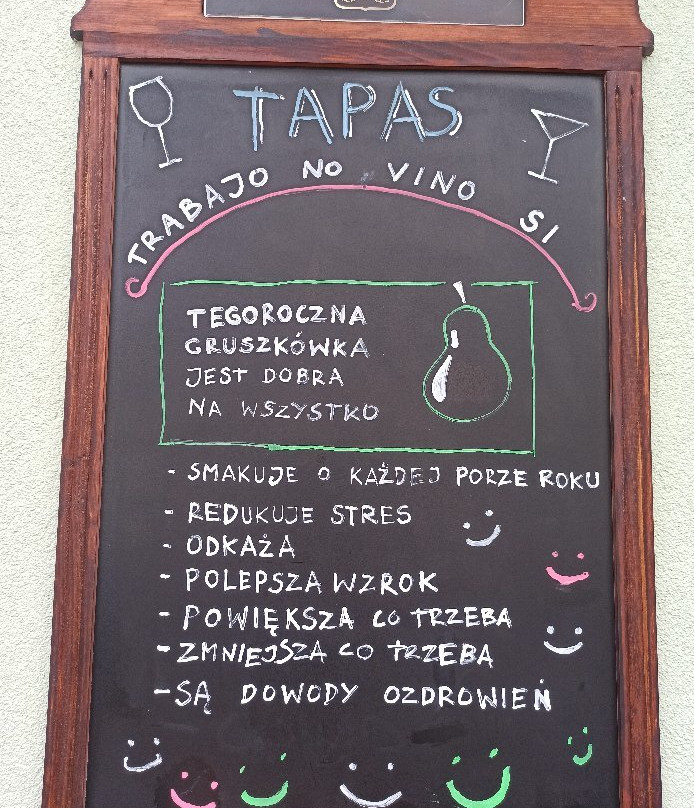 TAPAS
TRABAJO NO VINO SI
TEGOROCZNA
GRUSZKÓWKA
JEST DOBRA
NA WSZYSTKO
- SMAKUJE O KAŻDEJ PORZE ROKU
- REDUKUJE STRES
- ODKAŻA
- POLEPSZA WZROK
- POWIĘKSZA CO TRZEBA
- ZMNIEJSZA CO TRZEBA
- SĄ DOWODY OZDROWIEŃ